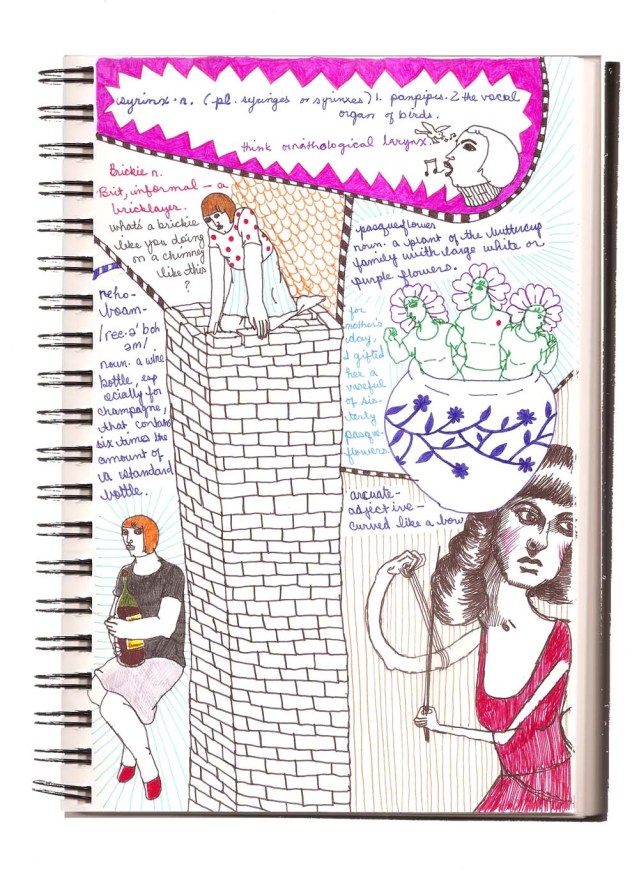 syrinx • n. (pl. syringes or syrinxes) 1. panpipes. 2 the vocal
organ of birds.
think ornithological larynx.
Brickie n.
Brit, informal — a
bricklayer.
whats a brickie
like you doing
on a chimney
like this
?
pasqueflower
noun. a plant of the buttercup
family with large white or
purple flowers.
for
mother's
day,
I gifted
her a
vaseful
of sis-
terly
pasque-
flowers.
reho-
boam-
/ree-ə'boh
əm/
noun. a wine
bottle, esp
ecially for
champagne,
that contains
six times the
amount of
a standard
bottle.
arcuate-
adjective-
curved like a bow